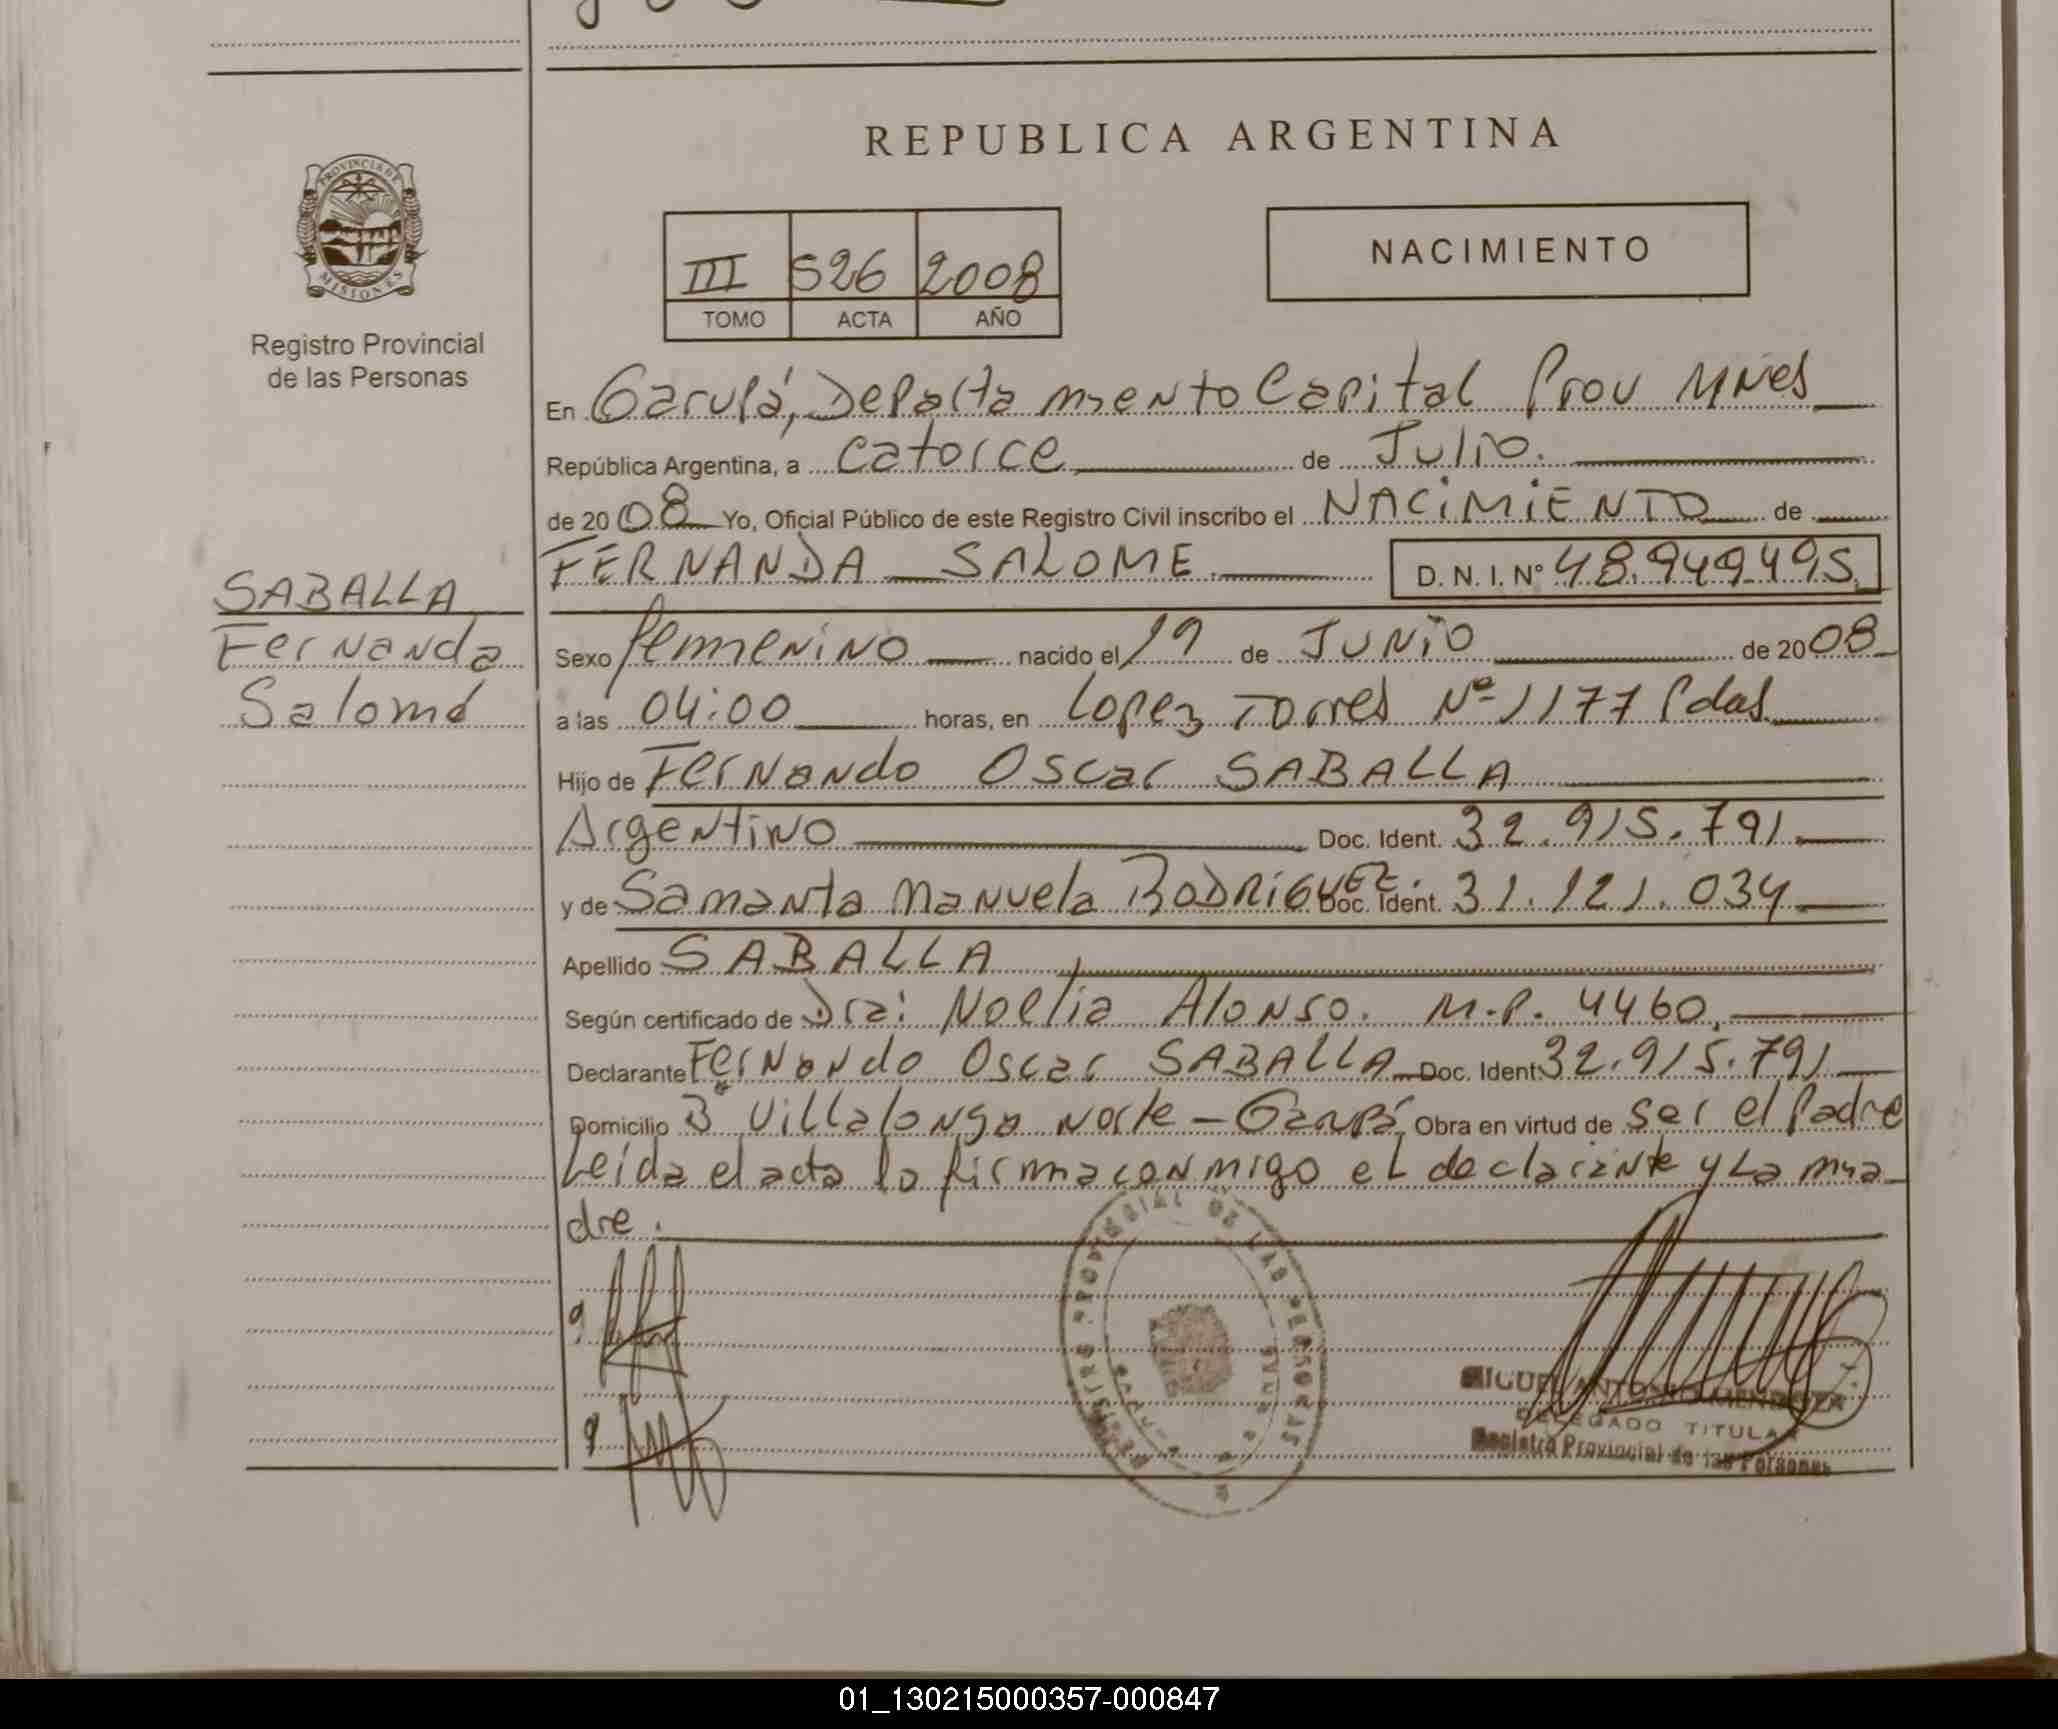 REPUBLICA ARGENTINA
PROVINCIA DE
MISIONES
Registro Provincial
de las Personas
III 526 2008
TOMO ACTA AÑO
NACIMIENTO
En Garupá, Departamento Capital Prov MNes
República Argentina, a catorce de Julio.
de 2008 Yo, Oficial Público de este Registro Civil inscribo el NACIMIENTO de
FERNANDA SALOME D. N. I. Nº 48.949.495
SABALLA
Fernanda
Salomé
Sexo femenino nacido el 19 de JUNIO de 2008
a las 04:00 horas, en Lopez Torres Nº 1177 Pdas
Hijo de Fernando Oscar SABALLA
Argentino Doc. Ident. 32.915.791
y de Samanta Manuela RODRIGUEZ. Doc. Ident. 31.121.034
Apellido SABALLA
Según certificado de Dra: Noelia Alonso. M.P. 4460,
Declarante Fernando Oscar SABALLA Doc. Ident. 32.915.791
Domicilio Bº Villalonga Norte - Garupá Obra en virtud de ser el Padre
Leída el acta la firma conmigo el declarante y La ma
dre.
REGISTRO PROVINCIAL DE LAS PERSONAS
MIGUEL ANTONIO MENDOZA
DELEGADO TITULAR
Registro Provincial de las Personas
01_130215000357-000847